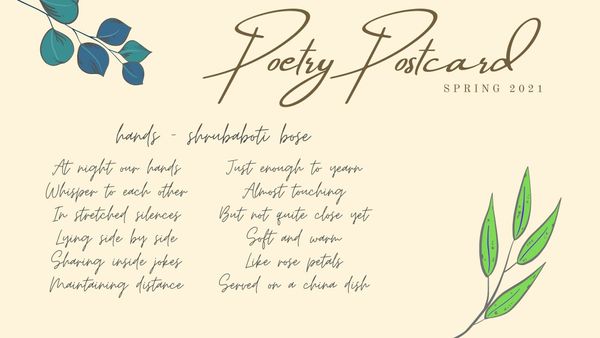 Poetry Postcard
SPRING 2021
hands - shrubaboti bose
At night our hands
Whisper to each other
In stretched silences
Lying side by side
Sharing inside jokes
Maintaining distance
Just enough to yearn
Almost touching
But not quite close yet
Soft and warm
Like rose petals
Served on a china dish